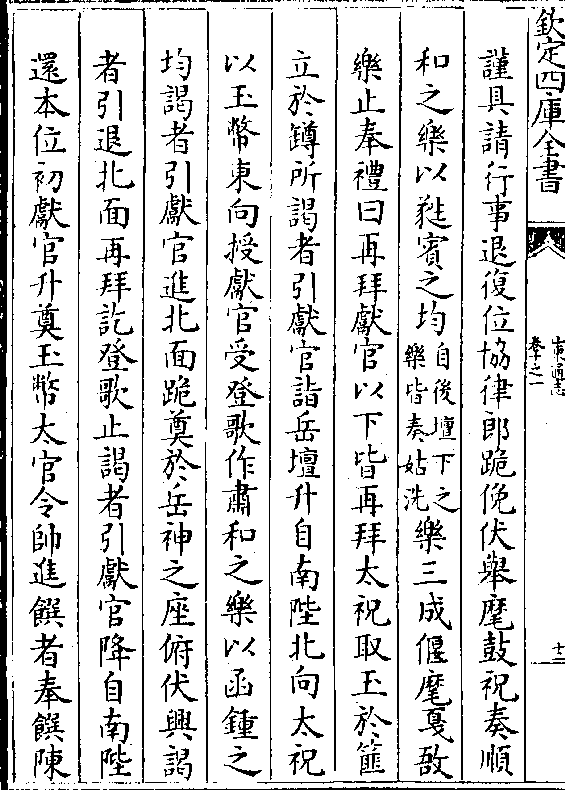 欽定四庫全書
謹具請行事退復位協律郎跪俛伏舉麾鼓柷奏順
和之樂以蕤賓之均自後壇下之樂皆奏姑洗樂三成偃麾戞敔
樂止奉禮曰再拜獻官以下皆再拜太祝取玉於篚
立於罇所謁者引獻官詣岳壇升自南陛北向太祝
以玉幣東向授獻官受登歌作肅和之樂以函鍾之
均謁者引獻官進北面跪奠於岳神之座俯伏興謁
者引退北面再拜訖登歌止謁者引獻官降自南陛
還本位初獻官升奠玉幣太官令帥進饌者奉饌陳
卷十之一
十二